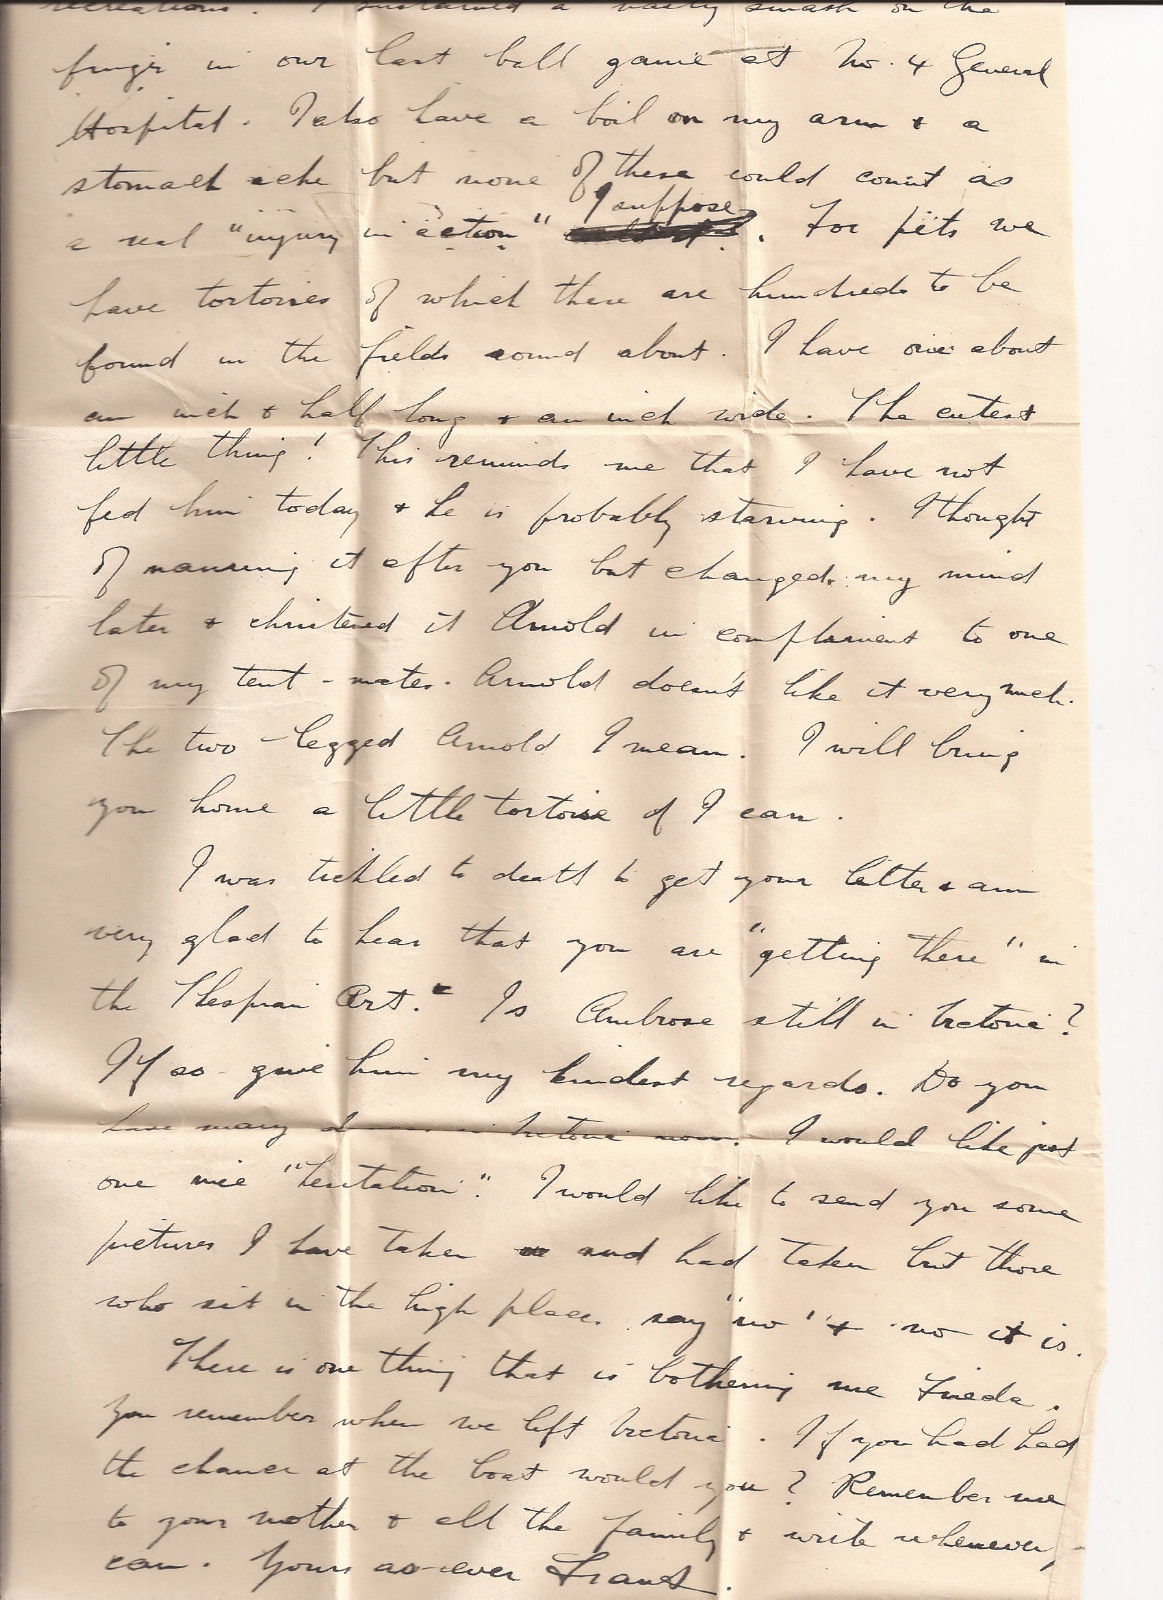 recreations. I sustained a nasty smash on the
finger in our last ball game at No. 4 General
Hospital. I also have a boil on my arm & a
stomach ache but none of these would count as
I suppose
a real "injury in action" . For pets we
have tortoises of which there are hundreds to be
found in the fields round about. I have one about
an inch & half long & an inch wide. The cutest
little thing! This reminds me that I have not
fed him today & he is probably starving. I thought
of naming it after you but changed my mind
later & christened it Arnold in compliment to one
of my tent-mates. Arnold doesn't like it very much.
The two-legged Arnold I mean. I will bring
you home a little tortoise if I can.
I was tickled to death to get your letter & am
very glad to hear that you are "getting there" in
the Thespian Art." Is Ambrose still in Victoria?
If so give him my kindest regards. Do you
have many in Victoria now. I would like just
one nice "hesitation". I would like to send you some
pictures I have taken and had taken but those
who sit in the high place. say "no" & no it is.
There is one thing that is bothering me Frieda.
You remember when we left Victoria. If you had had
the chance at the boat would you? Remember me
to your mother & all the family & write whenever
can. Yours as ever Frank.